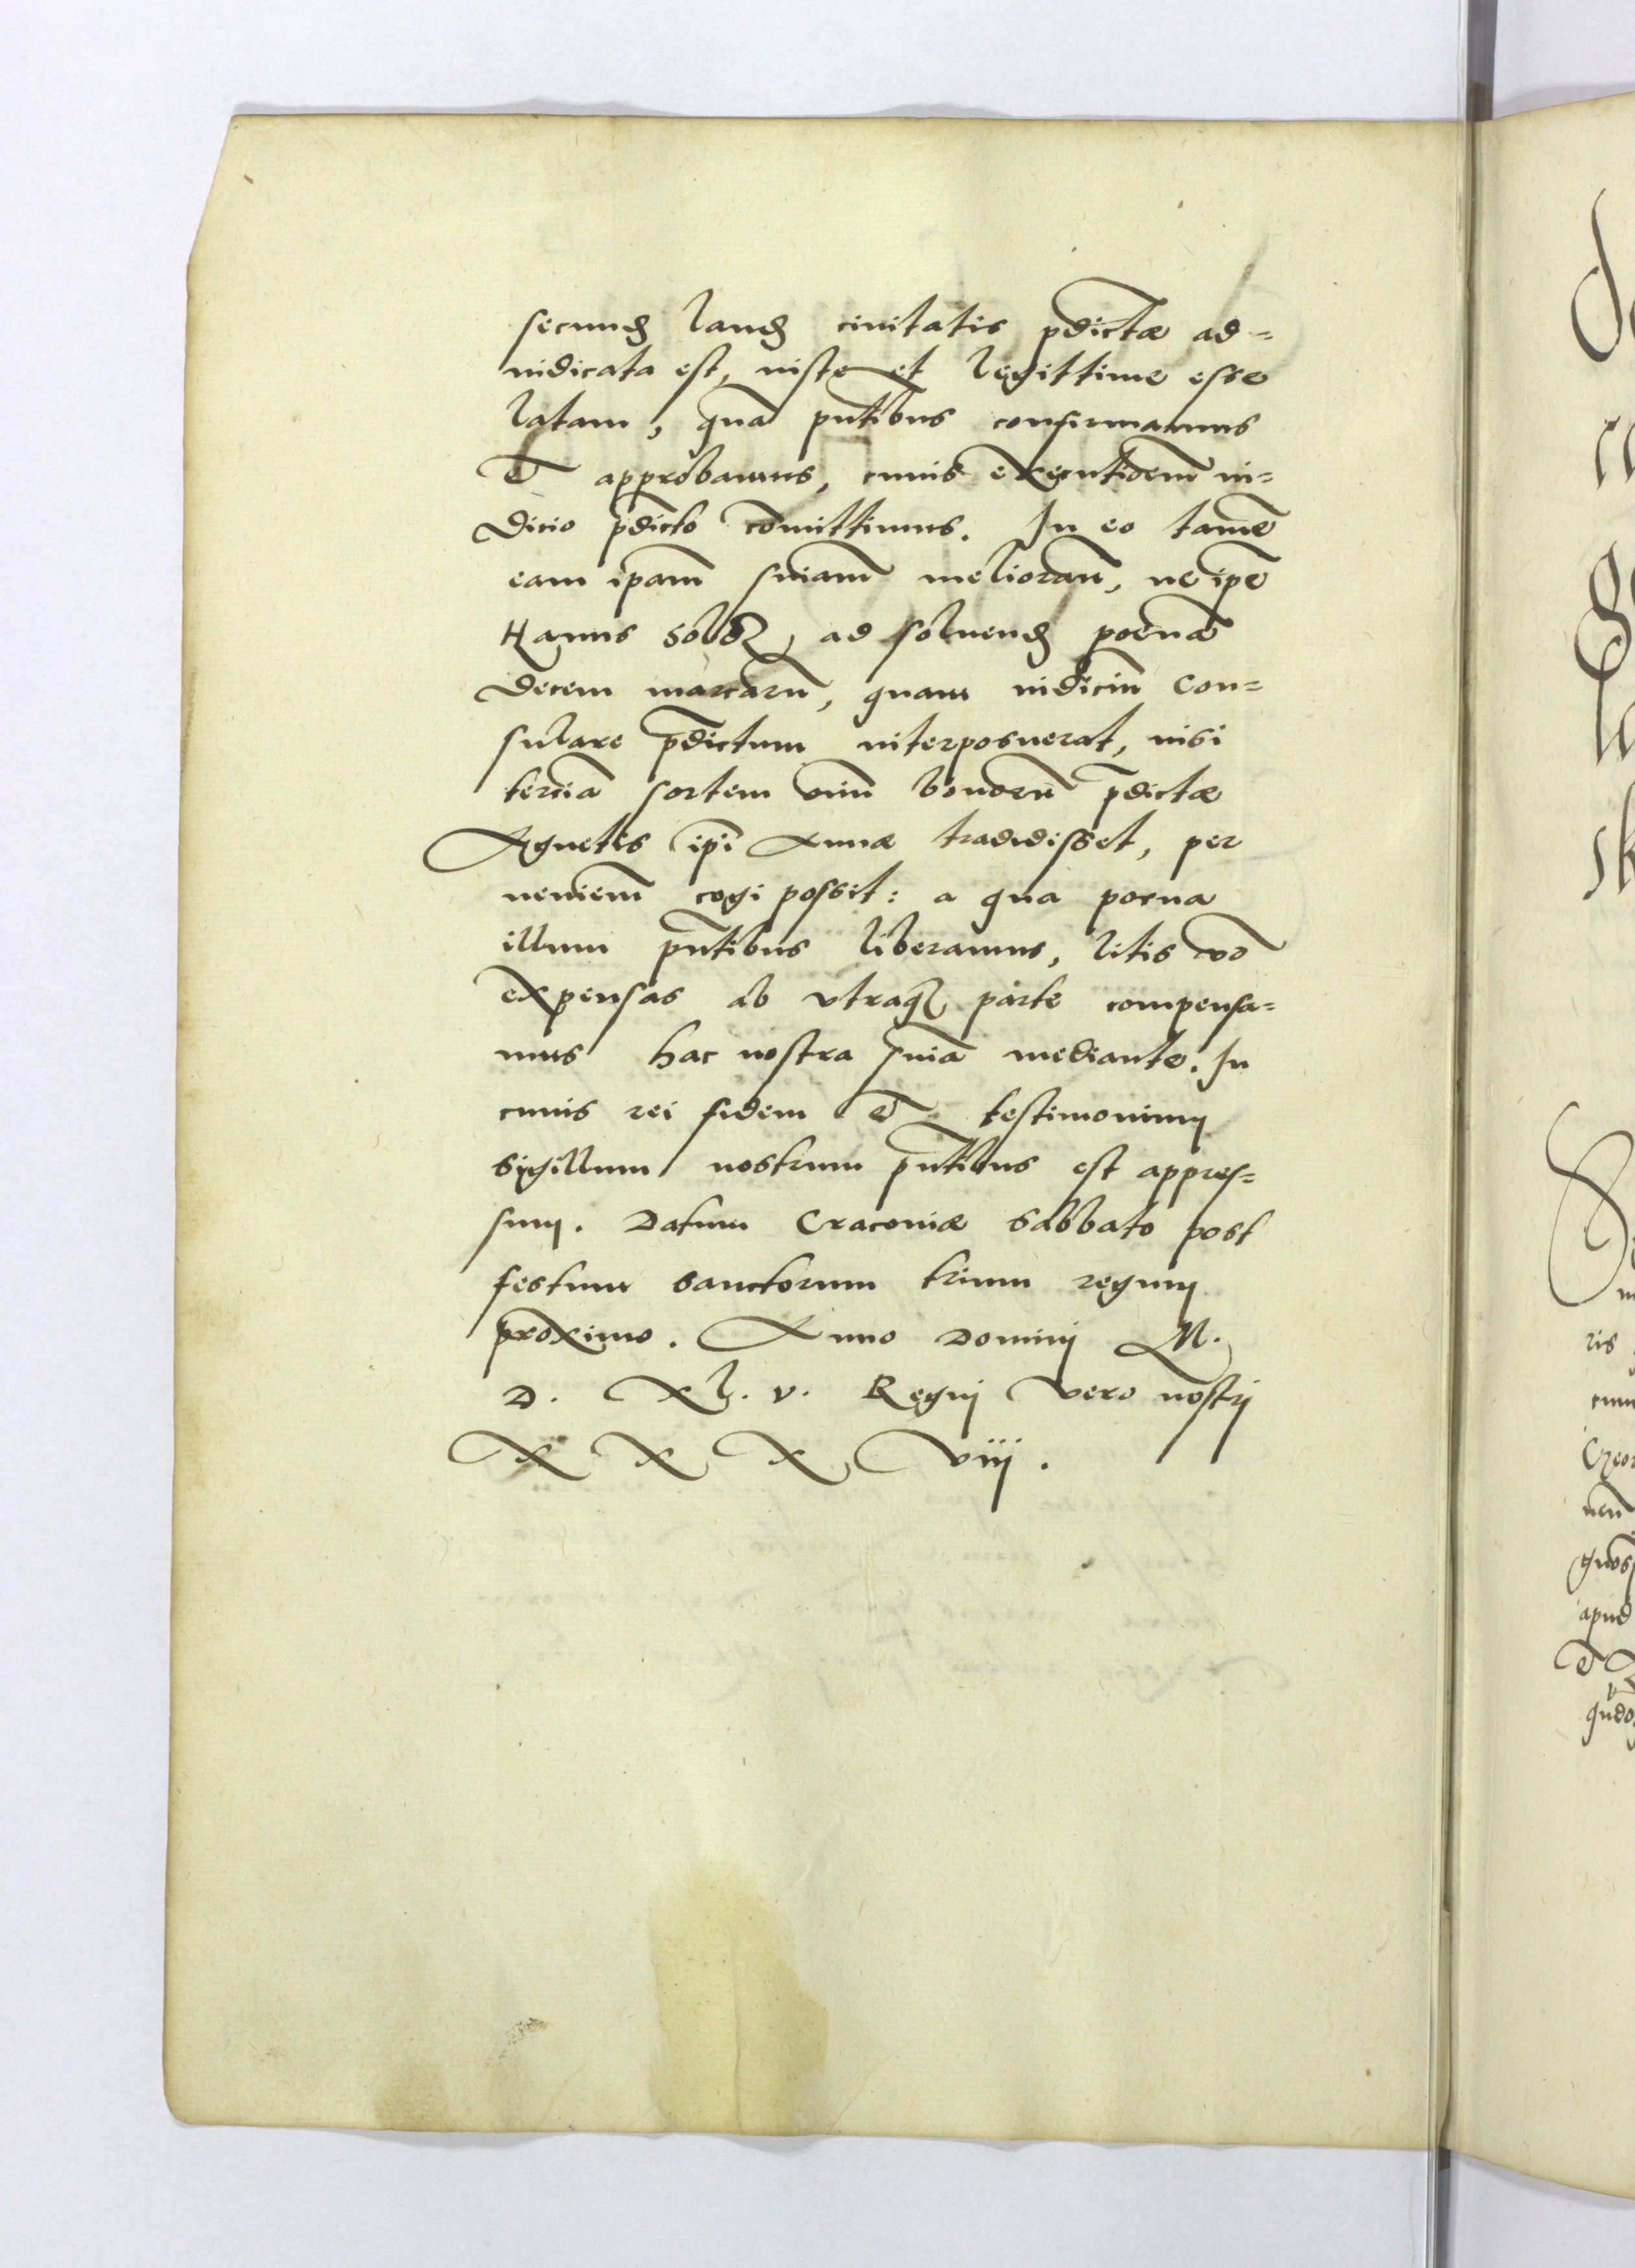 secund laud ciuitatis p̄dictæ ad=
iudicata est, iuste et legittime esse
latam, quā pn̄tibus confirmamus
et approbamus, cuius executioem̄ iu=
dicio p̄dicto cōmittimus. In eo tamē
eam ipam̄ sniam̄ melioran̄, ne ipē
Hanus ad soluend poenā
decem marcarū, quam iudiciū con=
sulare p̄dictum interposuerat, nisi
terciā sortem oīm̄ bonorū p̄dictæ
Agnetis ip̄i Annæ tradidisset, per
neniem̄ cogi possit: a qua poena
illum pn̄tibus liberamus, litis vō
expensas ab vtraq parte compensa=
mus hac nostra sniā mediante. In
cuius rei fidem et testimonium
sigillum nostrum pn̄tibus est appres=
sum. Datum Cracouiæ Sabbato post
festum sanctorum trium regum
proximo. Anno Domini M.
D. xl. v. Regnj vero nostrj
XXXviij.
ris
apud
et